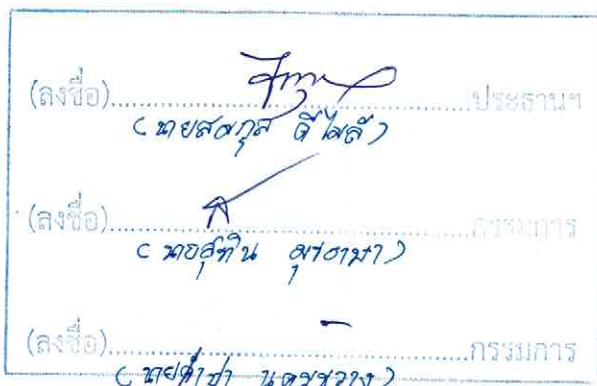 (ลงชื่อ)..............................ประธานฯ
(นายสดกุส ดีไสล้)
(ลงชื่อ)..............................กรรมการ
(นายสุทิน มุรอาษา)
(ลงชื่อ)..............................กรรมการ
(นายคำปา